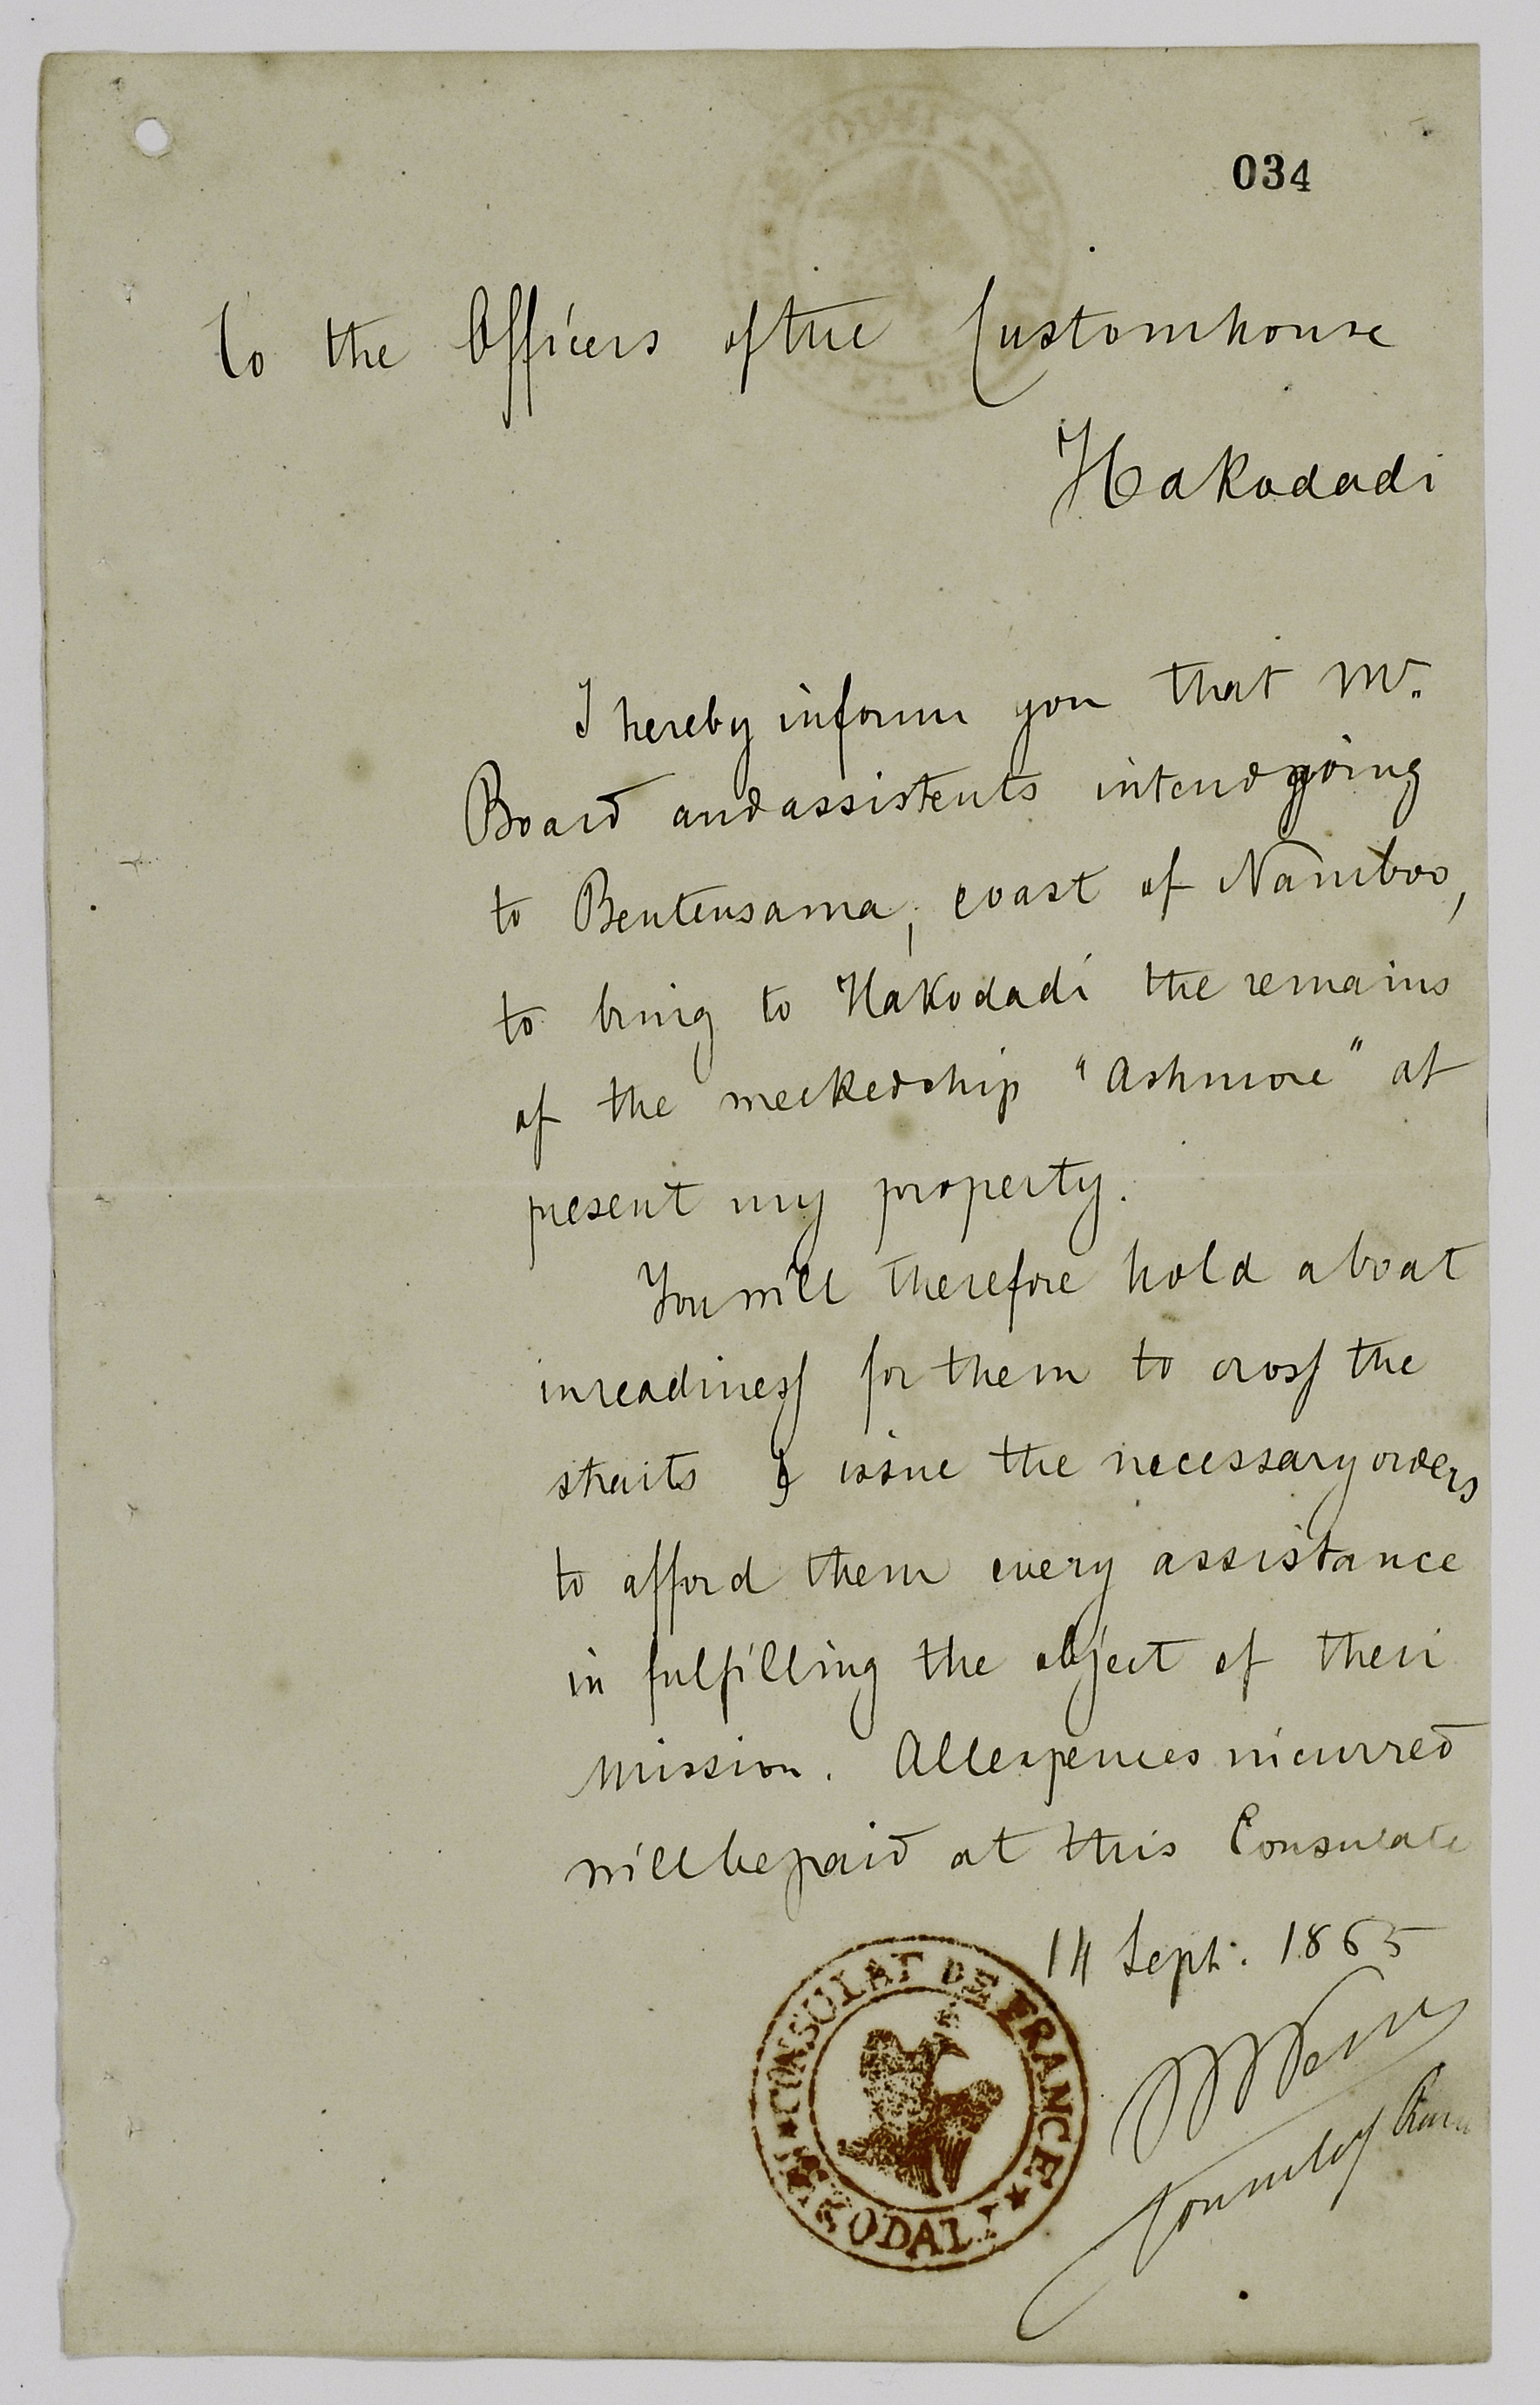 034
To the Officers of the Customhouse
Hakodadi
I hereby inform you that Mr.
Board and assistents intend going
to Bentensama, coast of Namboo,
to bring to Hakodadi the remains
of the wrecked ship "Ashmore" at
present my property.
You will therefore hold a boat
in readiness for them to cross the
straits & issue the necessary orders
to afford them every assistance
in fulfilling the object of their
mission. All expences incurred
will be paid at this Consulate
14 Sept. 1865
CONSULAT DE FRANCE